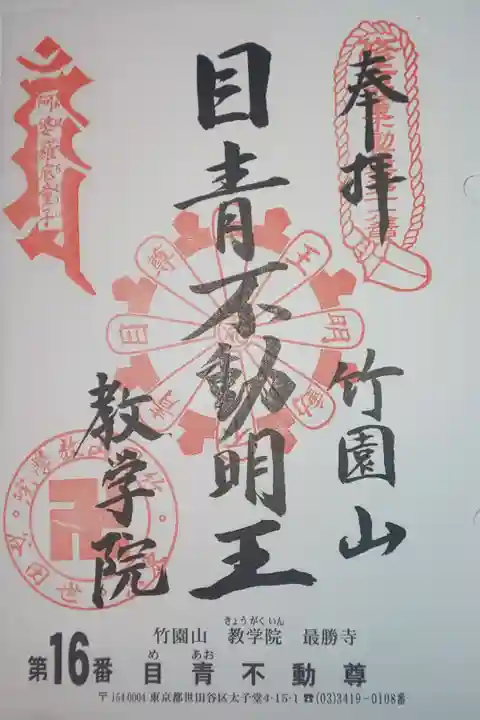 奉拝
目青不動明王
竹園山
教学院
阿婆羅底童子
竹園山 教学院 最勝寺
きょうがくいん
第16番 目青不動尊
め あお
〒154-0004 東京都世田谷区太子堂4-15-1 ☎(03)3419-0108番